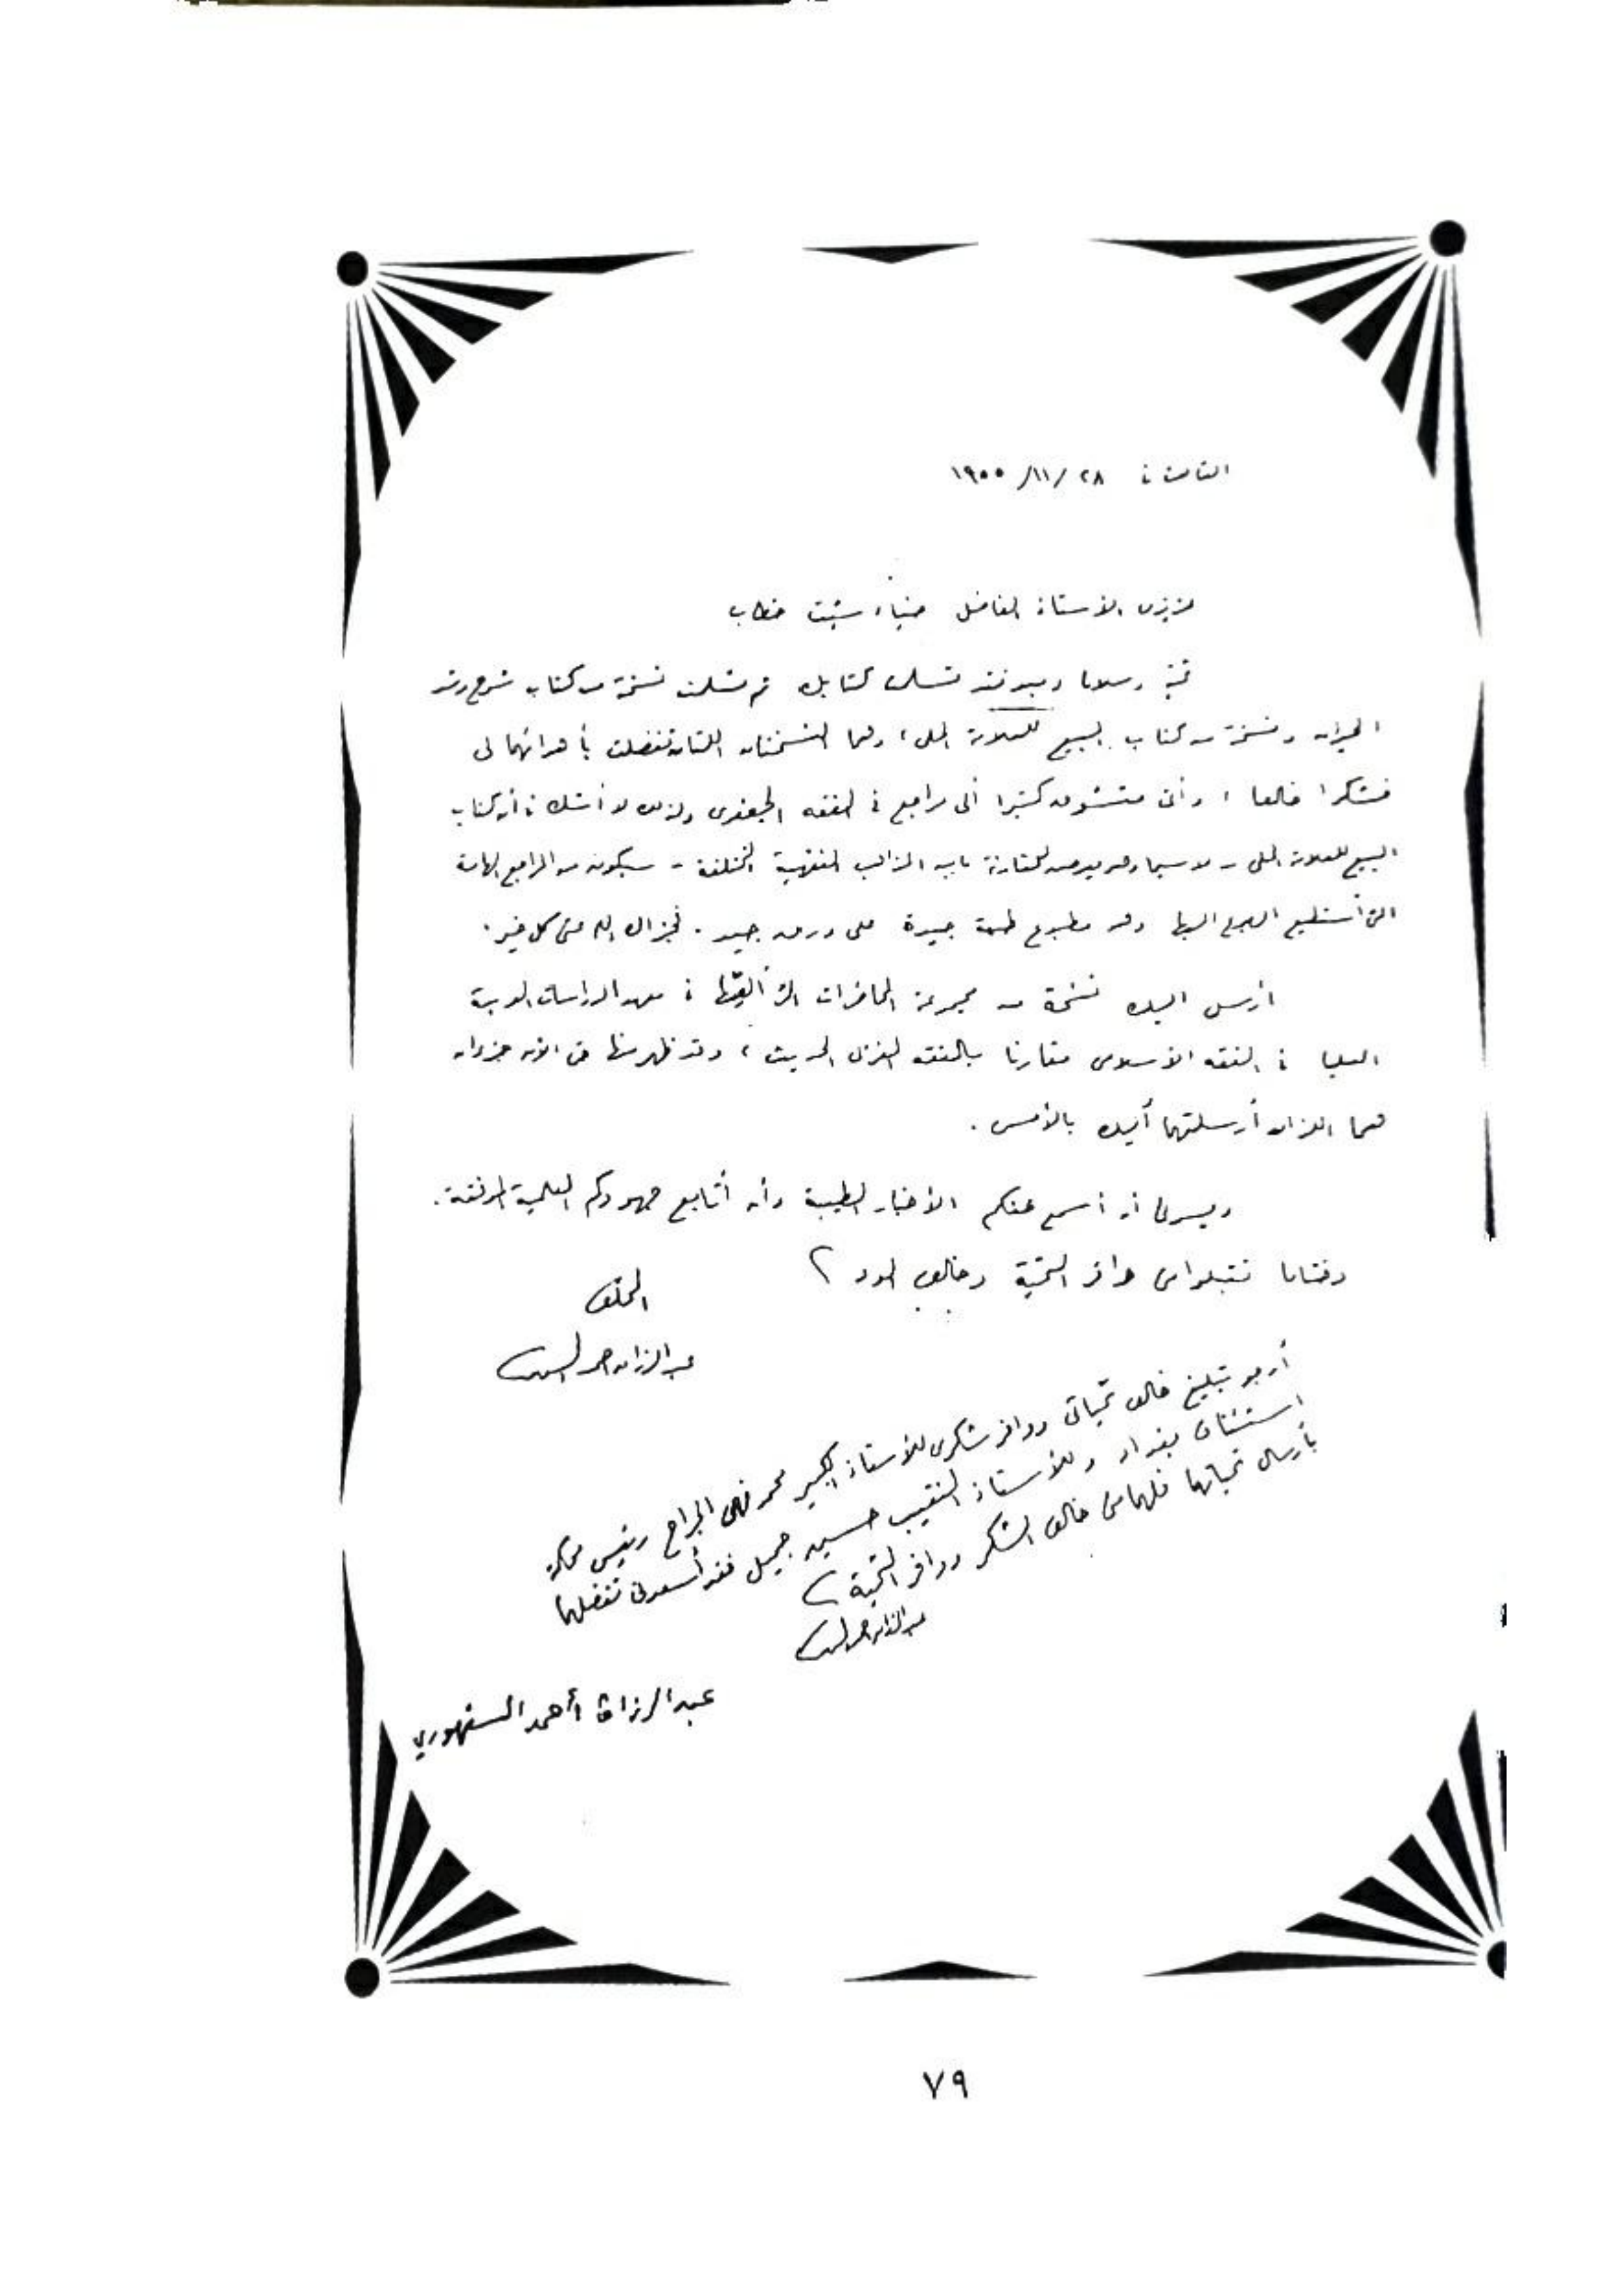 القاهرة في ٢٨ /١١/ ١٩٥٥
عزيزى الأستاذ الفاضل ضياء شيت خطاب
تحية وسلاما وبعد فقد تسلمت كتابك ثم تسلمت نسخة من كتاب شرح رشد
الحيران ونسخة من كتاب البيع للعلامة الحلى، وهما النسختان اللتان تفضلت بأهدائهما لى
فشكرا خالصا، وأنى متشوق كثيرا الى مراجع فى الفقه الجعفرى ولذلك لا أشك فى أن كتاب
البيع للعلامة الحلى - لا سيما وهو يعرض للمقارنة ما بين المذاهب الفقهية المختلفة - سيكون من المراجع الهامة
التى أستطيع الرجوع اليها وهو مطبوع طبعة جيدة على ورق جيد . فجزاك الله عنى كل خير .
أرسل اليك نسخة من مجموعة المحاضرات التى ألقيتها فى معهد الدراسات العربية
العليا فى الفقه الأسلامى مقارنا بالفقه الغربى الحديث، وقد ظهر منها حتى الآن جزءان
هما اللذان أرسلتهما أليك بالأمس .
ويسرنى أن أسمع عنكم الأخبار الطيبة وأن أتابع جهودكم العلمية الموفقة .
وختاما تقبلوا منى وافر التحية وخالص الود
المخلص
عبد الرزاق أحمد السنهورى
أرجو تبليغ خالص تحياتى ووافر شكرى للأستاذ الكبير محمد فهمى الجراح رئيس محكمة
استئناف بغداد وللأستاذ النقيب حسين جميل فقد أسعدنى تفضلهما
بأرسال تحياتهما فلهما منى خالص الشكر ووافر التحية
عبد الرزاق أحمد السنهورى
عبد الرزاق أحمد السنهوري
٧٩